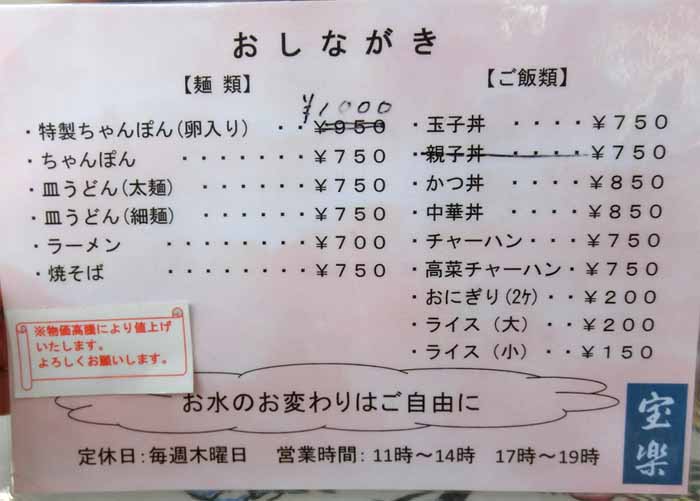 おしながき
【麺 類】
¥1000
・特製ちゃんぽん(卵入り) ・・¥950
・ちゃんぽん ・・・・・・・¥750
・皿うどん(太麺) ・・・・・¥750
・皿うどん(細麺) ・・・・・¥750
・ラーメン ・・・・・・・・¥700
・焼そば ・・・・・・・・¥750
【ご飯類】
・玉子丼 ・・・・¥750
・親子丼 ¥750
・かつ丼 ・・・・¥850
・中華丼 ・・・・¥850
・チャーハン・・・¥750
・高菜チャーハン・¥750
・おにぎり(2ケ)・・¥200
・ライス(大)・・¥200
・ライス(小)・・¥150
※物価高騰により値上げ
いたします。
よろしくお願いします。
お水のお変わりはご自由に
定休日:毎週木曜日 営業時間:11時~14時 17時~19時
宝楽